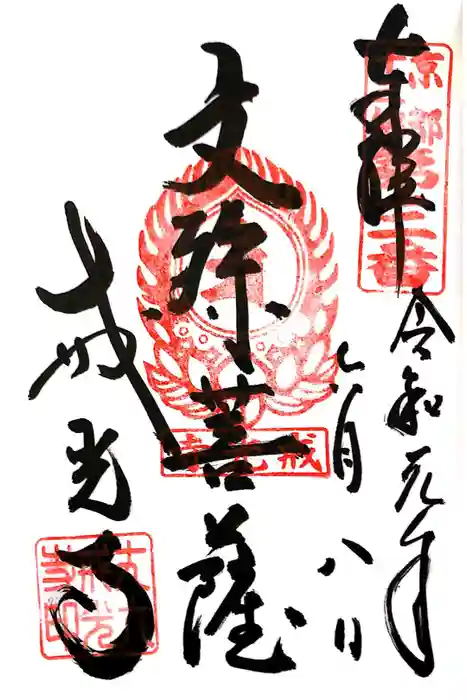 奉拝
京都
第三番
令和元年
六月
八日
文殊菩薩
戒光寺
戒光寺